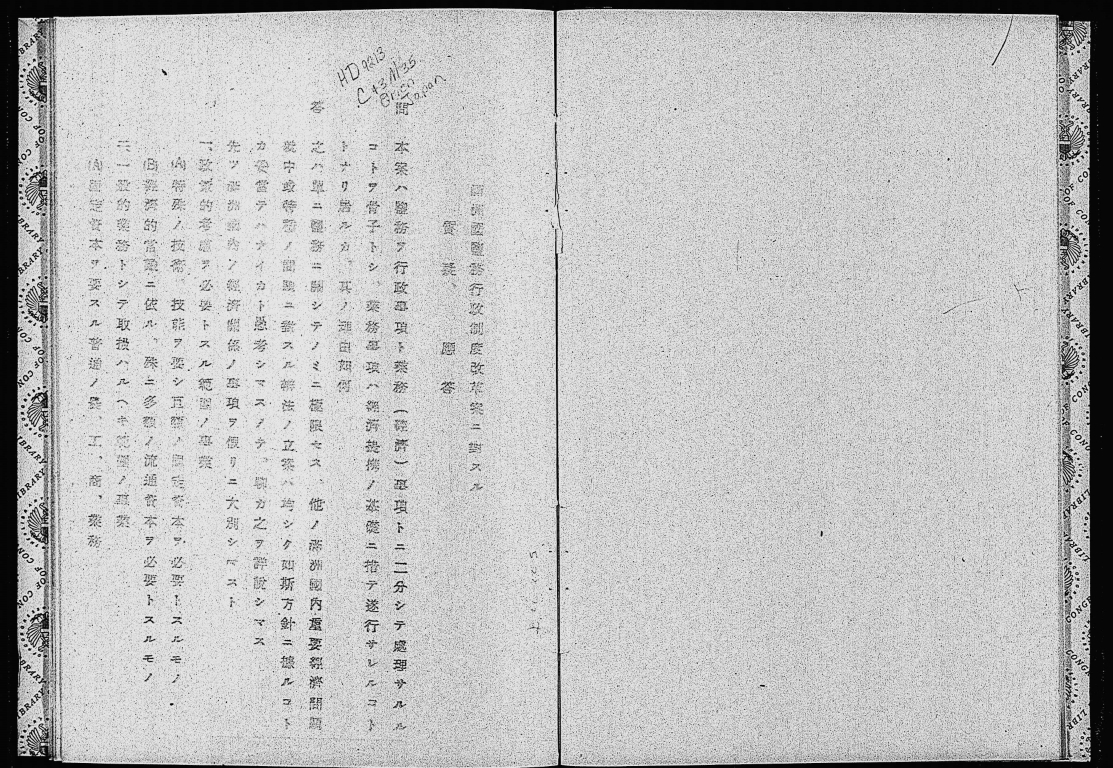 満洲國鹽務行政制度改革案ニ對スル
質疑、應答
問 本案ハ鹽務ヲ行政事項ト業務(經濟)事項トニ二分シテ處理サルル
コトヲ骨子トシ、業務事項ハ經濟提携ノ基礎ニ措テ遂行サレルコト
トナリ居ルカ、其ノ理由如何
答 之ハ單ニ鹽務ニ關シテノミニ極限セス、他ノ滿洲國內重要經濟問題
中 特務ノ ニ スル 法ノ立案ハ均シク如斯方針ニ據ルコト
カ妥當テハナイカト愚考シマスノテ、 カ之ヲ詳說シマス
先ツ 洲 內ノ經濟關係ノ事項ヲ假リニ大別シマスト
一、政策的考慮ヲ必要トスル範圍ノ事業
(A)特殊ノ技術、技能ヲ要シ且 ノ固定資本ヲ必要トスルモノ
(B)經濟的常識ニ依ル、殊ニ多額ノ流通資本ヲ必要トスルモノ
二、一般的業務トシテ取扱ハルヘキ範圍ノ事業
(A)固定資本ヲ要スル普通ノ農、工、商、業務
HD9213
C43M35
Orien
Japan
LIBRARY OF CONGRESS